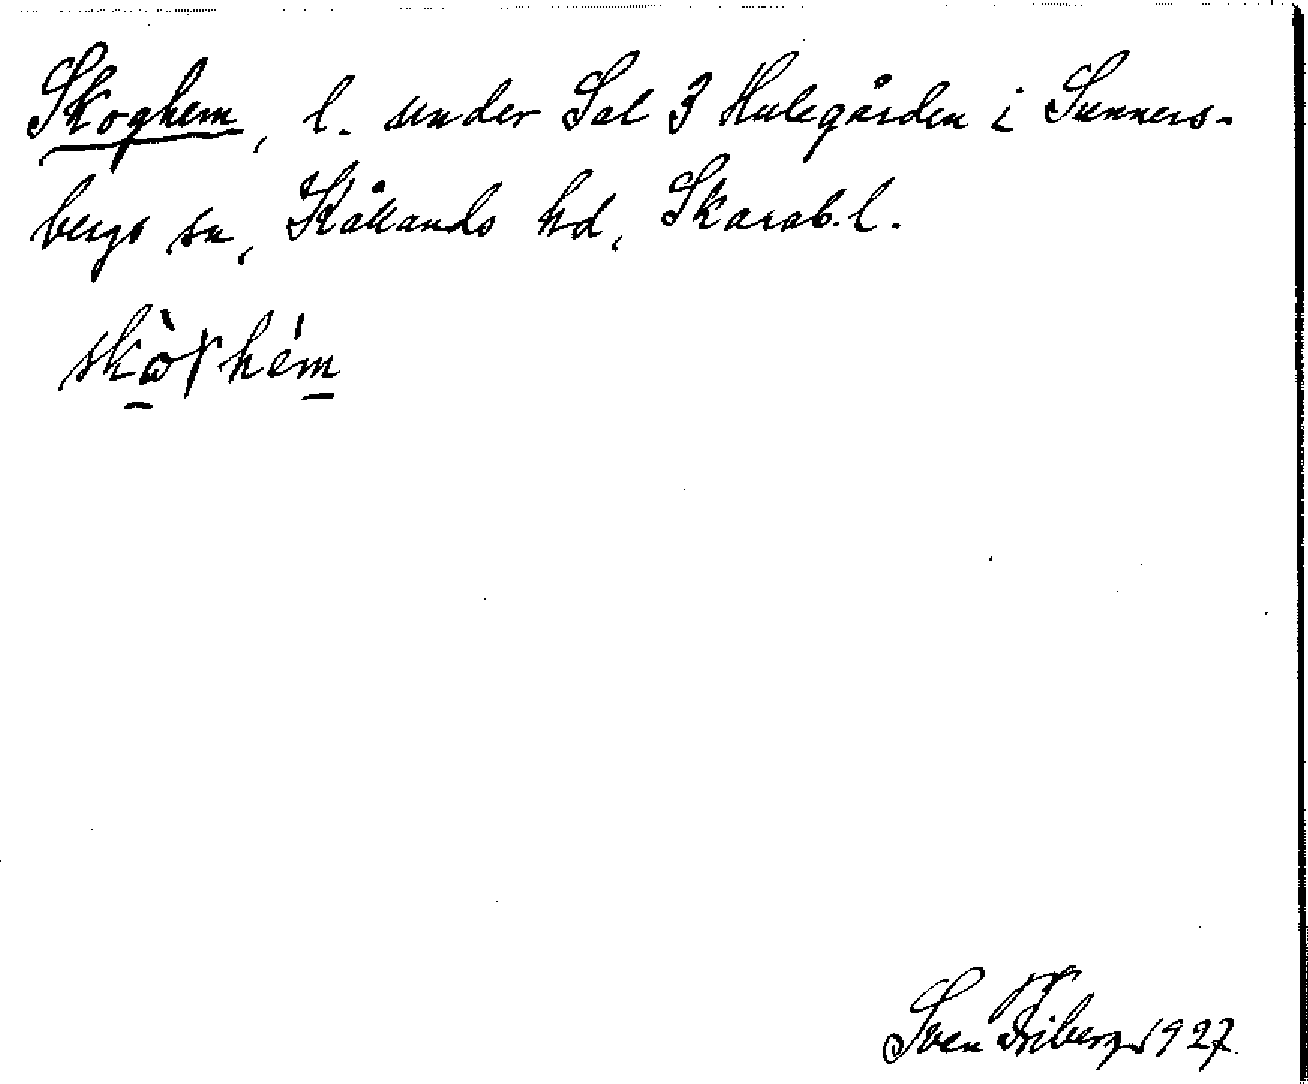 Skoghem, l. under Sal 3 Hulegården i Sunners-
bergs sn, Kållands hd, Skarab.l.
Sven Friberg 1927.